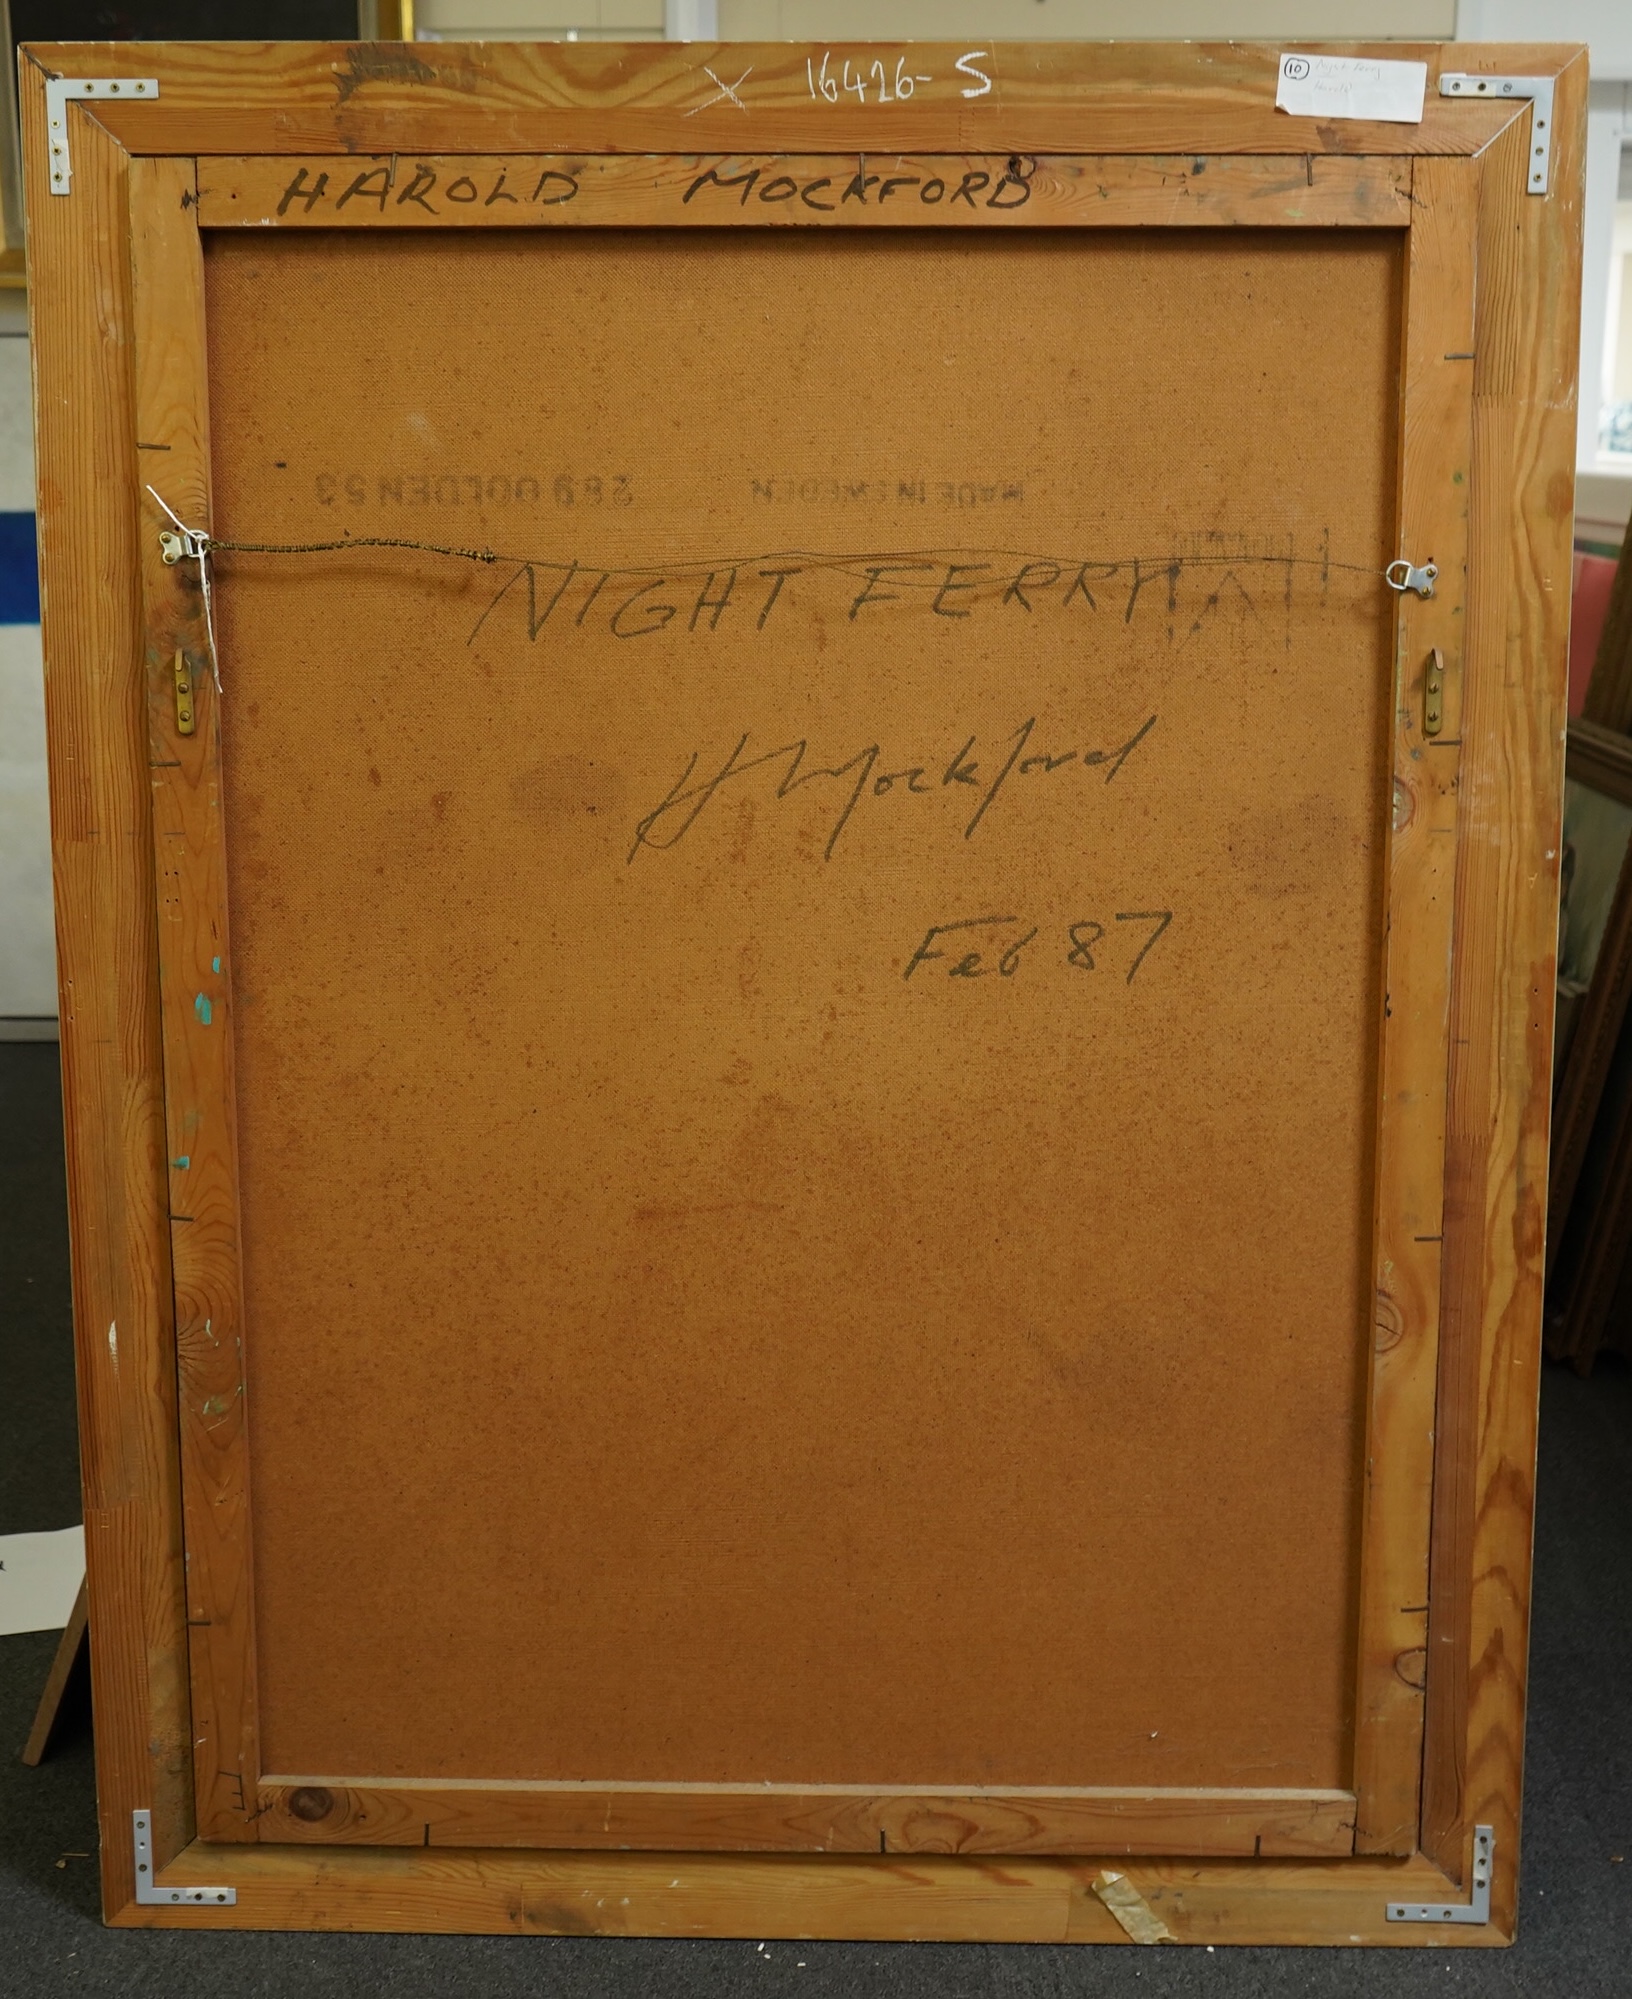 X 16426-S
10 Night Ferry
Harold
HAROLD MOCKFORD
MADE IN SWEDEN
NIGHT FERRY
H Mockford
Feb 87